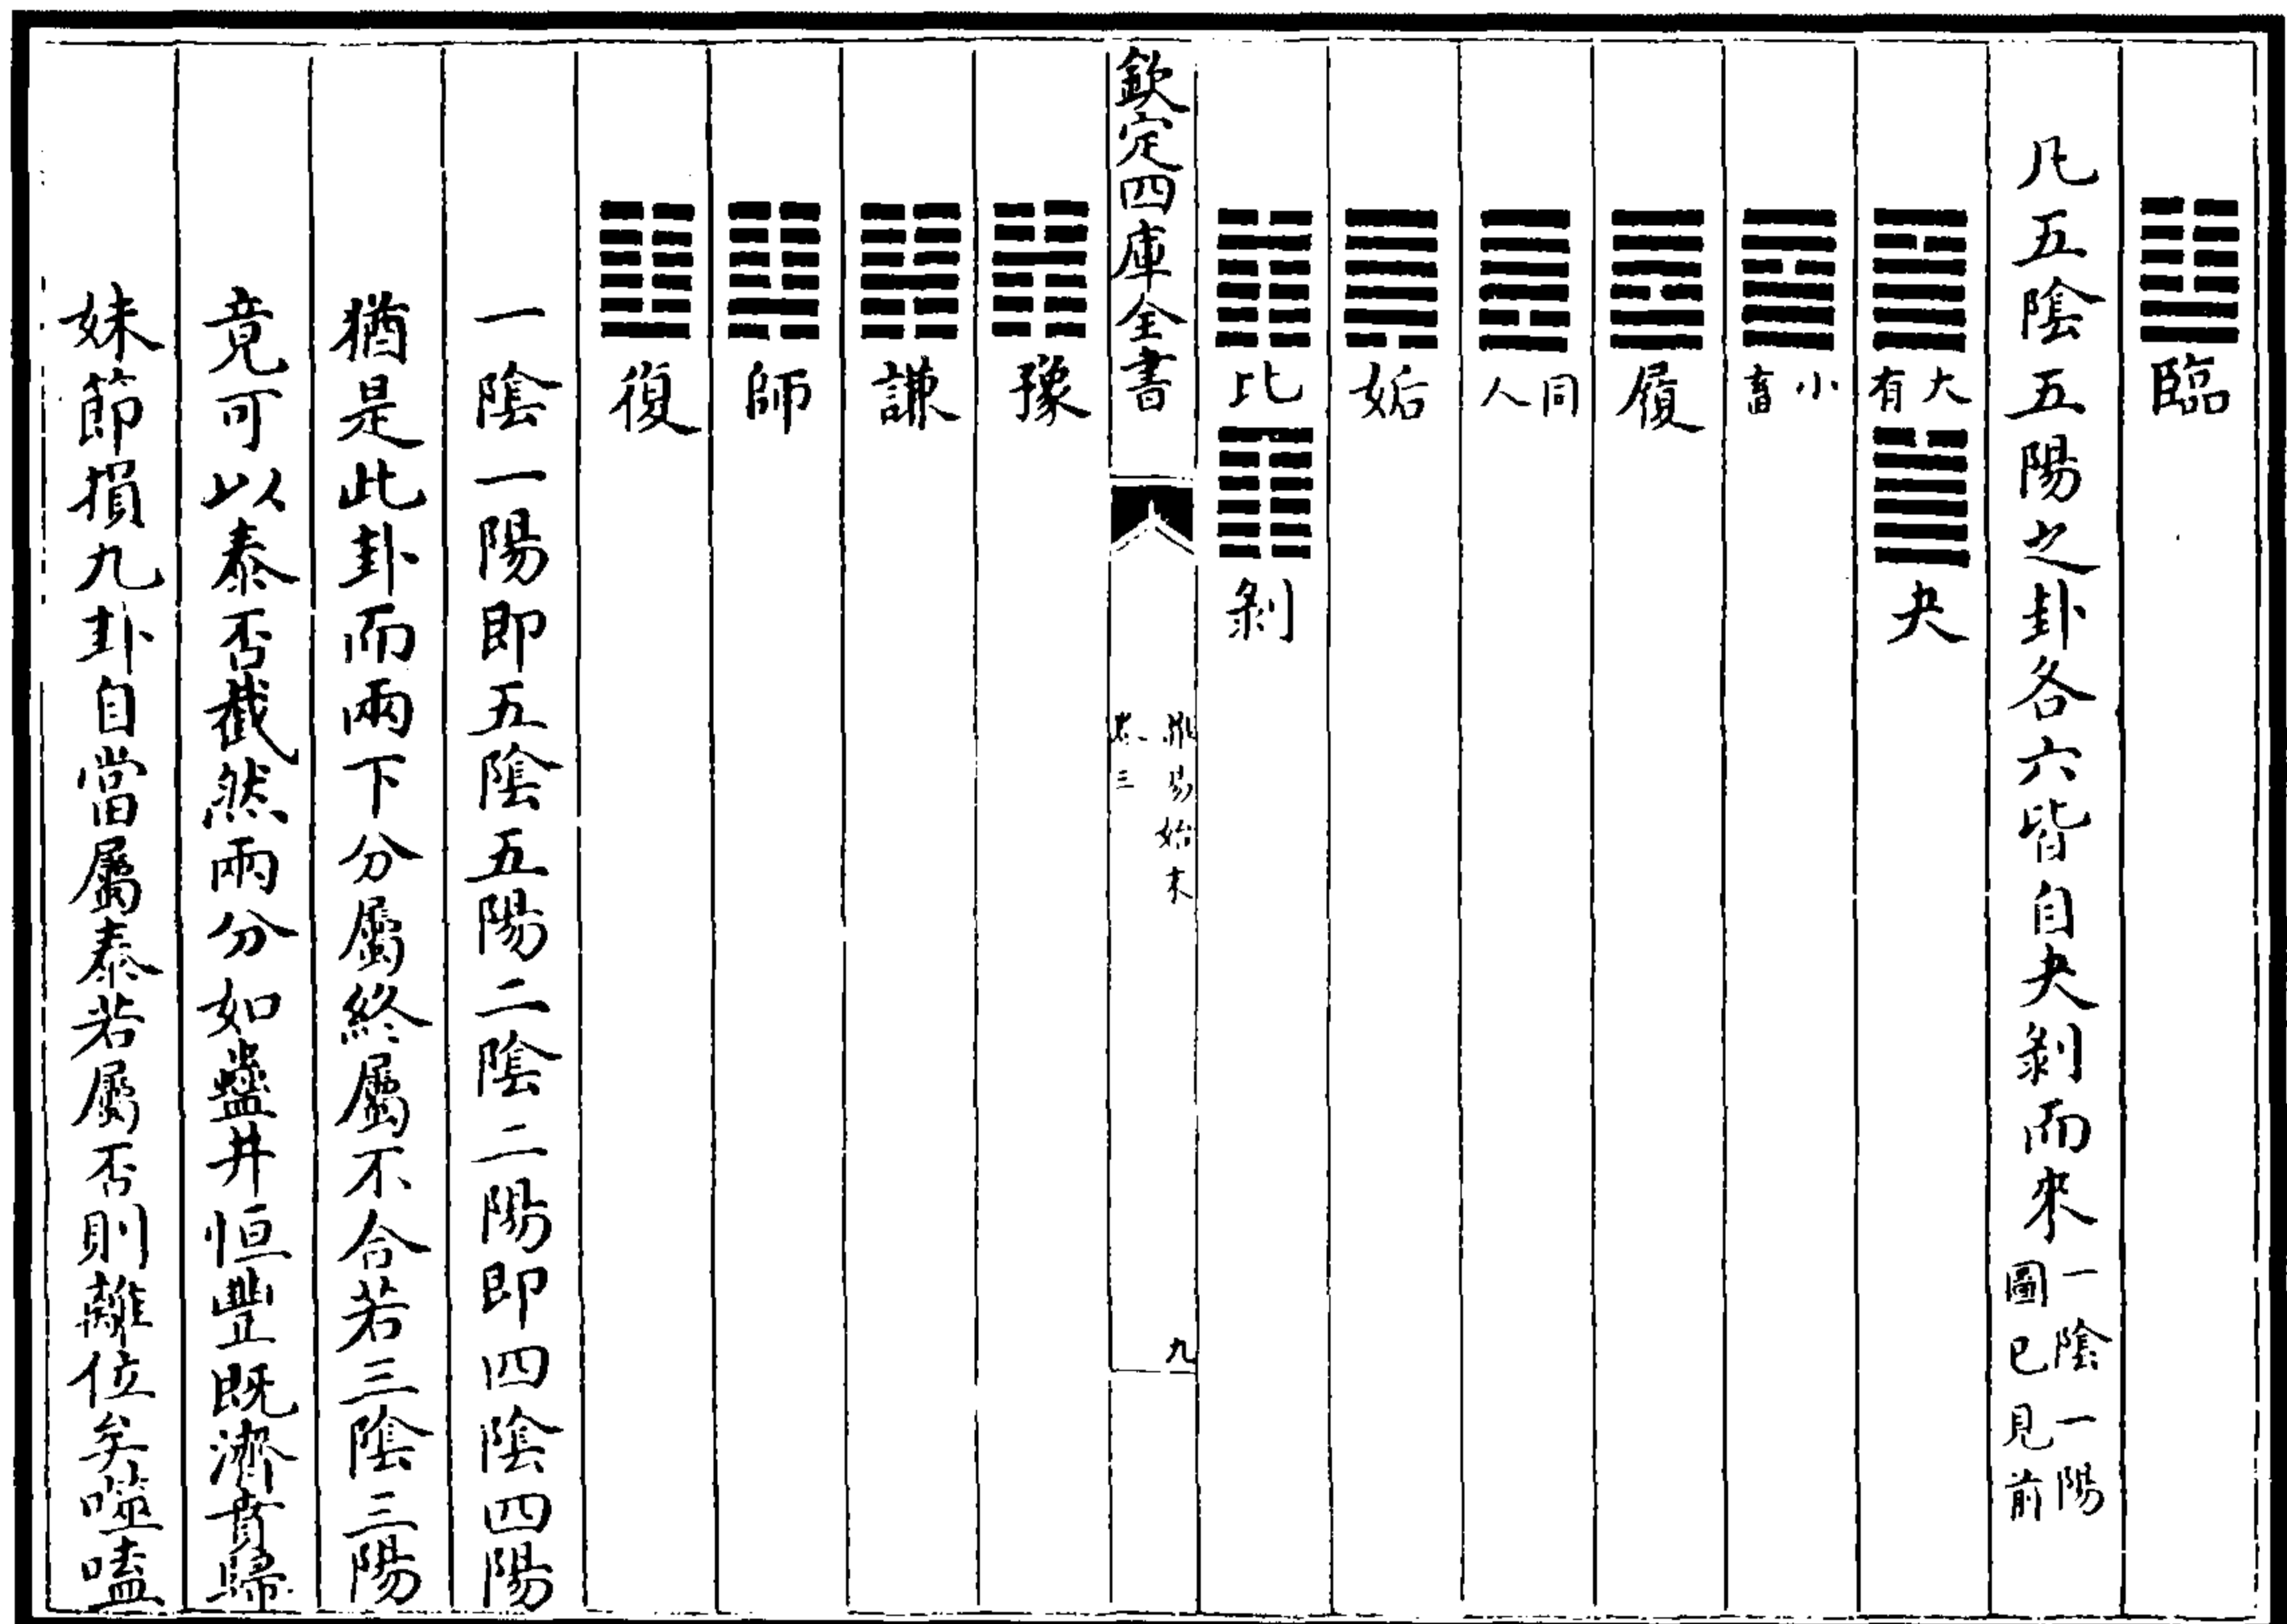 臨
凡五陰五陽之卦各六皆自夬剝而來一陰一陽圖已見前
大有　夬
小畜
履
同人
姤
比　剝
欽定四庫全書
易始末
卷三
九
豫
謙
師
復
一陰一陽即五陰五陽二陰二陽即四陰四陽
猶是此卦而兩下分屬終屬不合若三陰三陽
竟可以泰否截然兩分如蠱井恒豐既濟賁歸
妹節損九卦自當屬泰若屬否則離位矣噬嗑